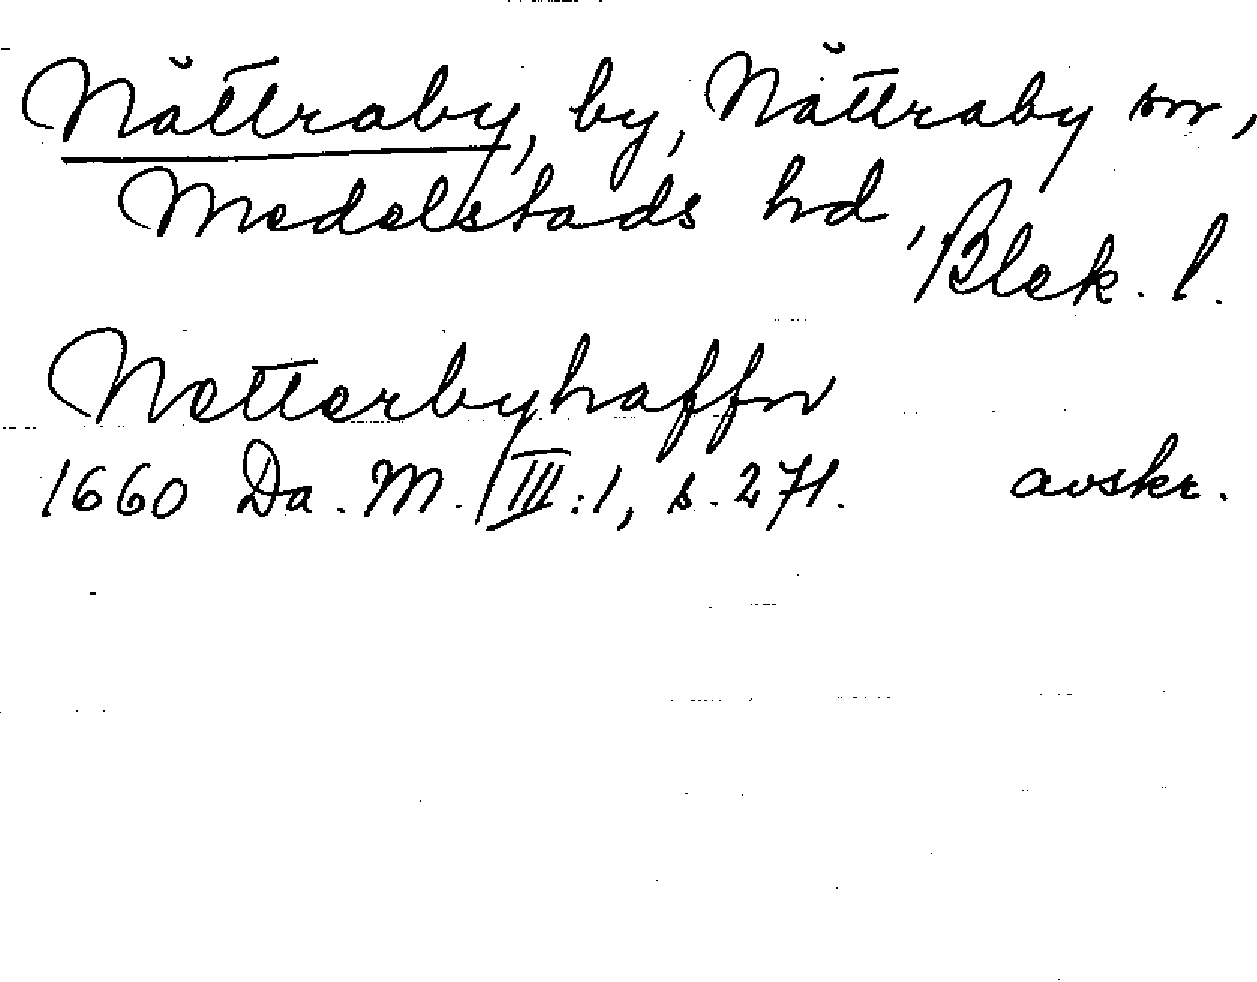 Nättraby, by, Nättraby sn,
Medelstads hd, Blek. l.
Netterbyhaffn
1660 Da. M. III:1, s. 271. avskr.